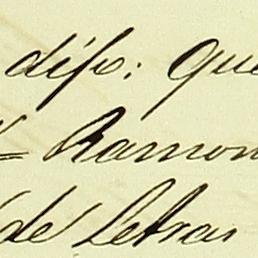 dijo: que
Ramon
de Letras